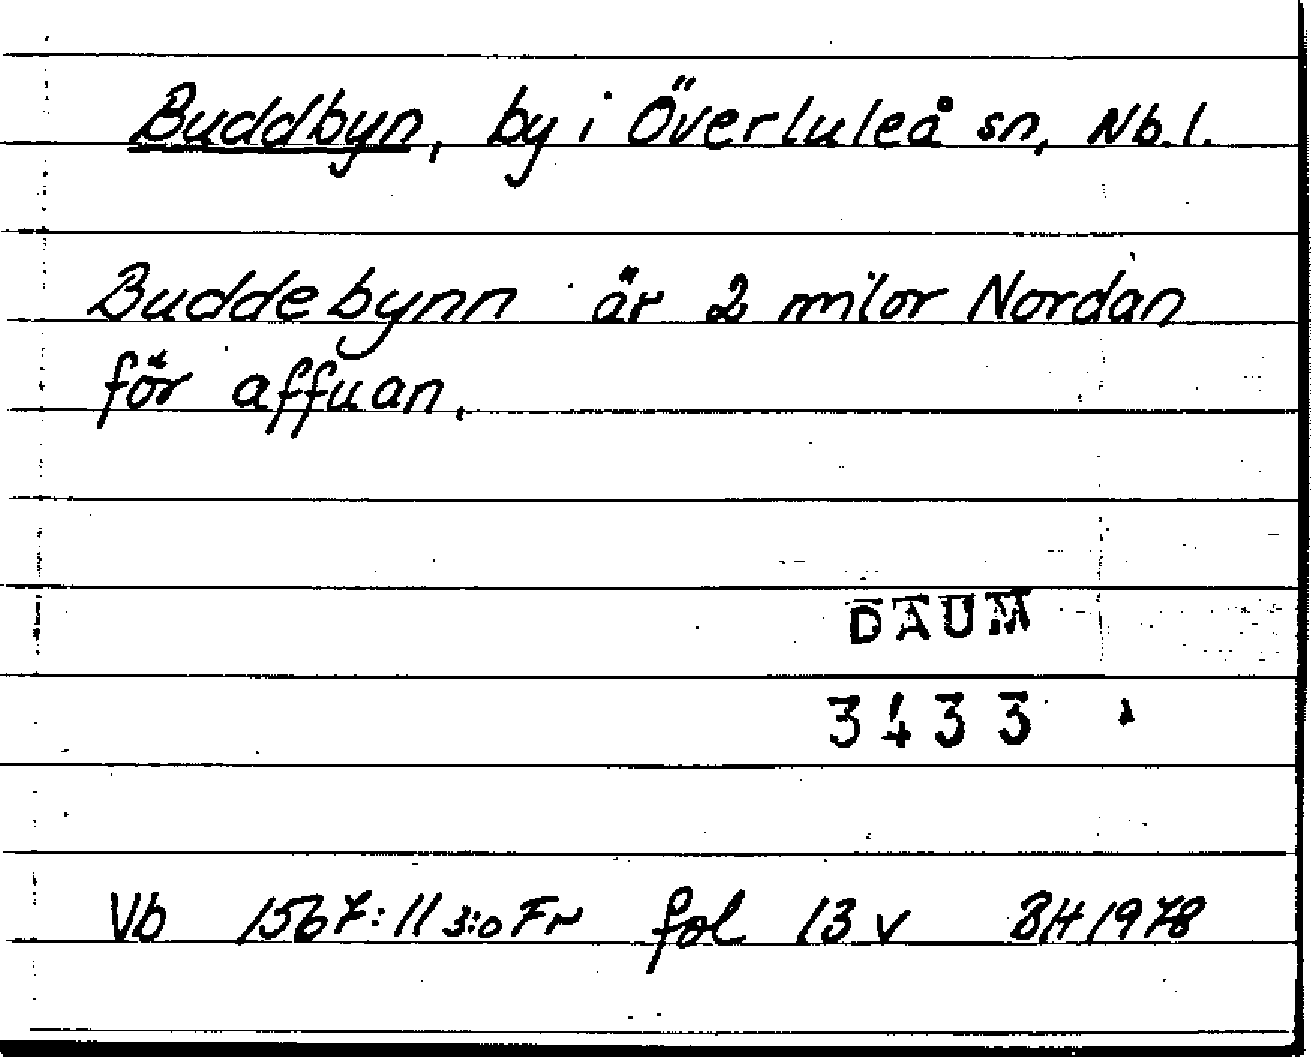 Buddbyn, by i Överluleå sn, Nb.l.
Buddebynn är 2 milor Nordan
för affuan.
DAUM
3433
Vb 1567:11 3:o Fr fol 13 v BH 1978